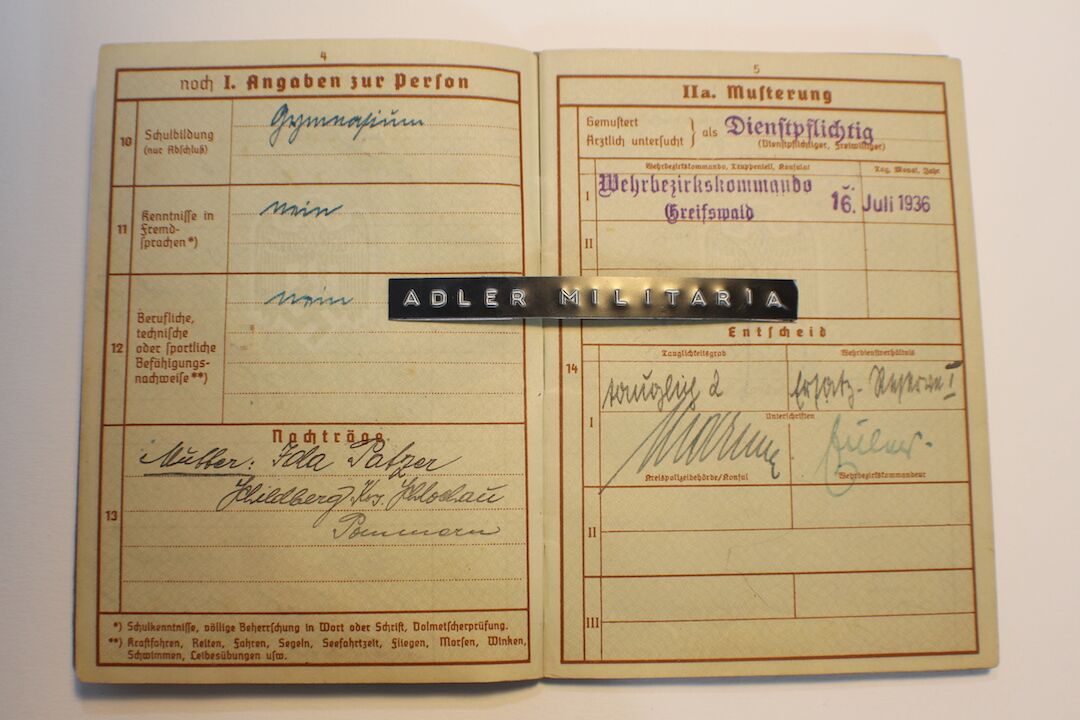 4
noch I. Angaben zur Person
10
Schulbildung
(nur Abschluß)
Gymnasium
11
Kenntnisse in
Fremd-
sprachen*)
nein
12
Berufliche,
technische
oder sportliche
Befähigungs-
nachweise**)
nein
Nachträge
13
Mutter: Ida Patzer
Schildberg Krs. Schlochau
Pommern
*) Schulkenntnisse, völlige Beherrschung in Wort oder Schrift, Dolmetscherprüfung.
**) Kraftfahren, Reiten, Fahren, Segeln, Seefahrtzeit, Fliegen, Morsen, Winken,
Schwimmen, Leibesübungen usw.
ADLER MILITARIA
5
IIa. Musterung
Gemustert
Ärztlich untersucht } als Dienstpflichtig
(Dienstpflichtiger, Freiwilliger)
Wehrbezirkskommando, Truppenteil, Konsulat
Tag, Monat, Jahr
I
Wehrbezirkskommando
Greifswald
16. Juli 1936
II
Entscheid
14
Tauglichkeitsgrad
Wehrdienstverhältnis
I
tauglich 2
Ersatz-Reserve I
Unterschriften
Kreispolizeibehörde/Konsul
Wehrbezirkskommandeur
II
III